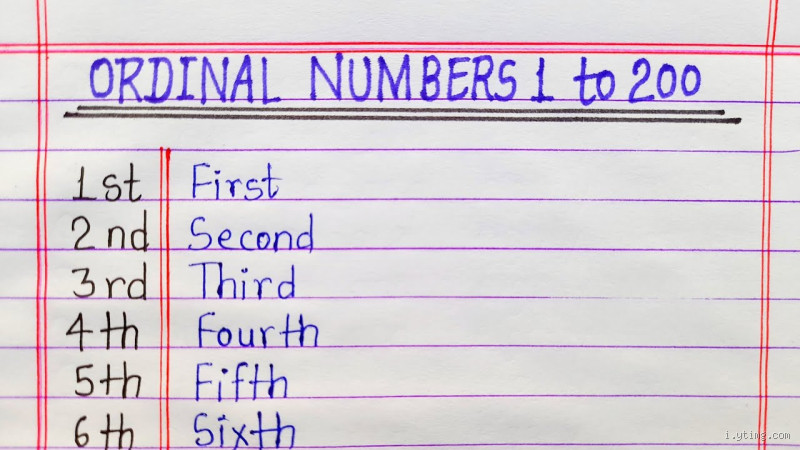 ORDINAL NUMBERS 1 to 200
1st First
2nd Second
3rd Third
4th Fourth
5th Fifth
6th Sixth
i.ytimg.com